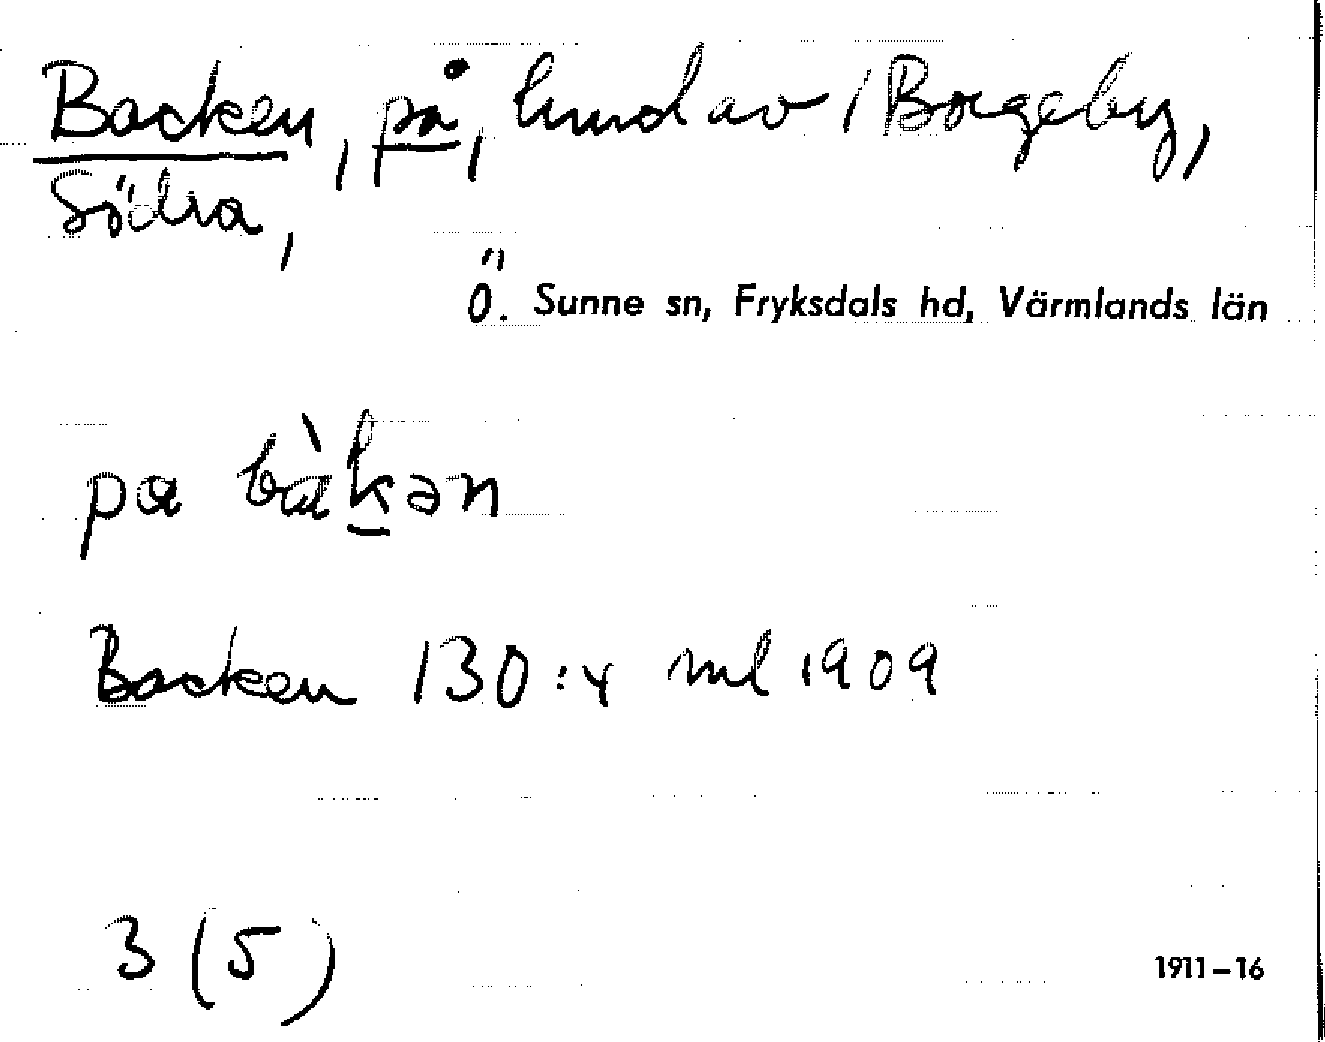 Backen, på, hmd av 1 Borgeby,
Södra,
Ö. Sunne sn, Fryksdals hd, Värmlands län
pa bàkən
Backen 130:4 ml 1909
3 (5)
1911–16